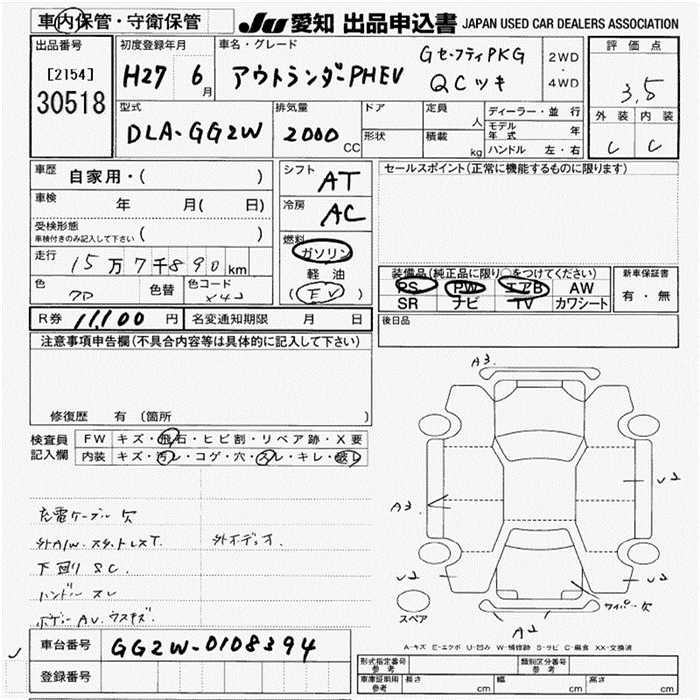 車内保管・守衛保管
JU 愛知 出品申込書 JAPAN USED CAR DEALERS ASSOCIATION
出品番号
[2154]
30518
初度登録年月
H27 6月
車名・グレード
アウトランダーPHEV
Gセーフティ PKG
QCツキ
2WD
・
4WD
評価点
3.5
外装 内装
C C
型式
DLA-GG2W
排気量
2000 CC
ドア
形状
定員 人
積載 kg
ディーラー・並行
モデル年式 年
ハンドル 左・右
車歴 自家用・( )
車検 年 月( 日)
受検形態
車検付きのみ記入して下さい ( )
走行 15万7千890km
色 色替 色コード
X42
シフト AT
冷房 AC
燃料
ガソリン
軽油
(EV)
セールスポイント(正常に機能するものに限ります)
装備品(純正品に限り○をつけてください)
PS PW エアB AW
SR ナビ TV カワシート
新車保証書
有・無
後日品
R券 11,100円 名変通知期限 月 日
注意事項申告欄(不具合内容等は具体的に記入して下さい)
修復歴 有 (箇所 )
検査員記入欄
FW キズ・飛石・ヒビ割・リペア跡・X要
内装 キズ・汚レ・コゲ・穴・スレ・キレ・破レ
充電ケーブル欠
外A/W.スタットレスT. 外オーディオ.
下廻りSC.
ハンドルスレ
ボデーAU.ウスキズ.
A3.
A3.
U2
U2
U2
A2
ワイパー欠
スペア
A-キズ E-エクボ U-凹み W-補修跡 S-サビ C-腐食 XX-交換済
車台番号 GG2W-0108394
登録番号
型式指定番号 参考
類別区分番号 参考
車庫証明用 参考 長さ cm 幅 cm 高さ cm